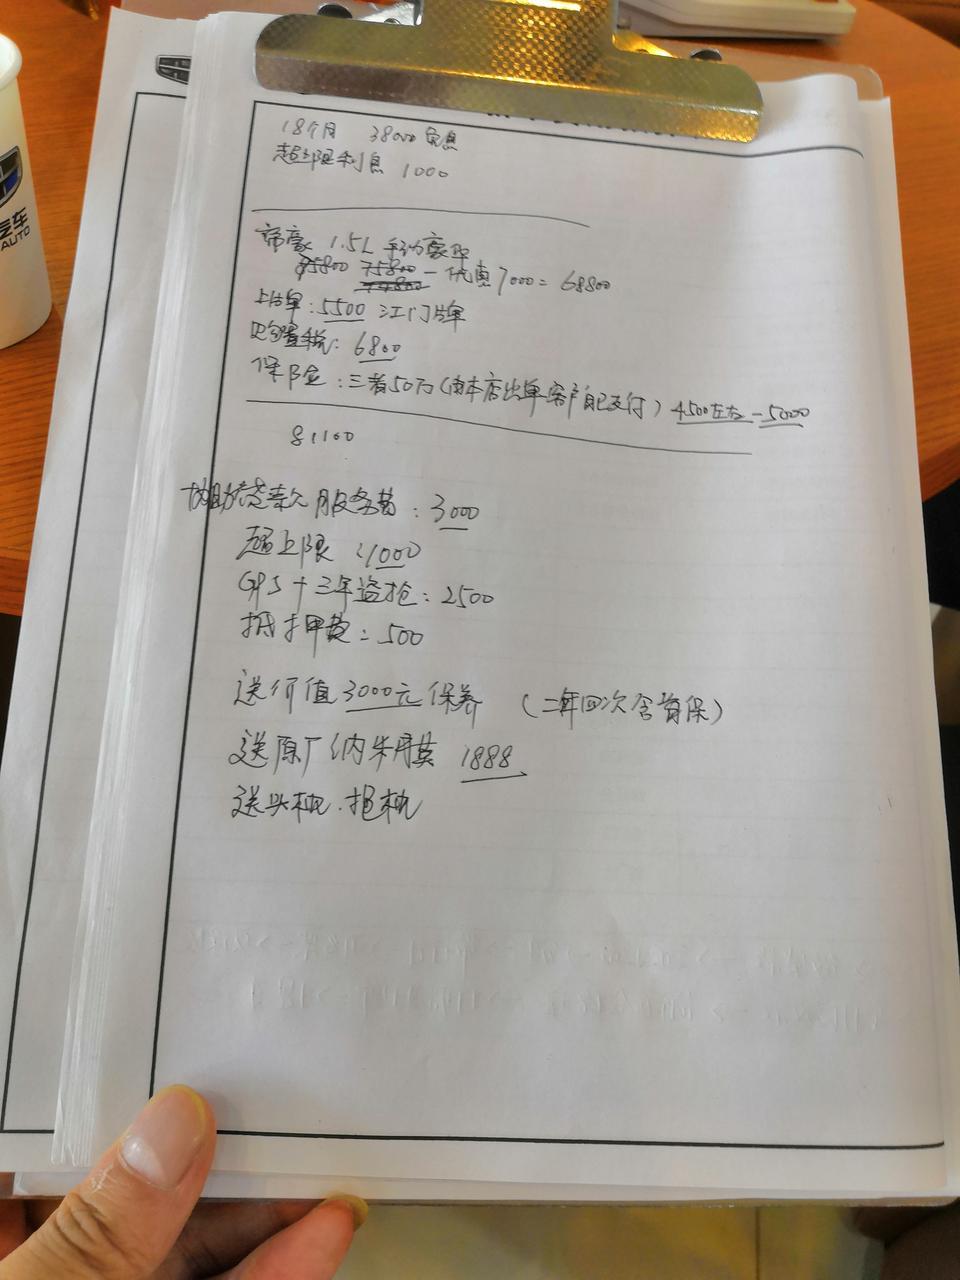 18个月 38000免息
超邧限利息 1000
帝豪 1.5L 手动豪华
75800 75800 - 优惠7000 = 68800
74800
上牌: 5500 江门牌
购置税: 6800
保险: 三者50万(由本店出单客户自己支付) 4500左右 - 5000
81100
协助贷款服务费: 3000
超上限: 1000
GPS + 三年盗抢: 2500
抵押费: 500
送价值3000元保养 (二年四次含首保)
送原厂纳米用膜 1888
送头枕.抱枕
汽车
AUTO